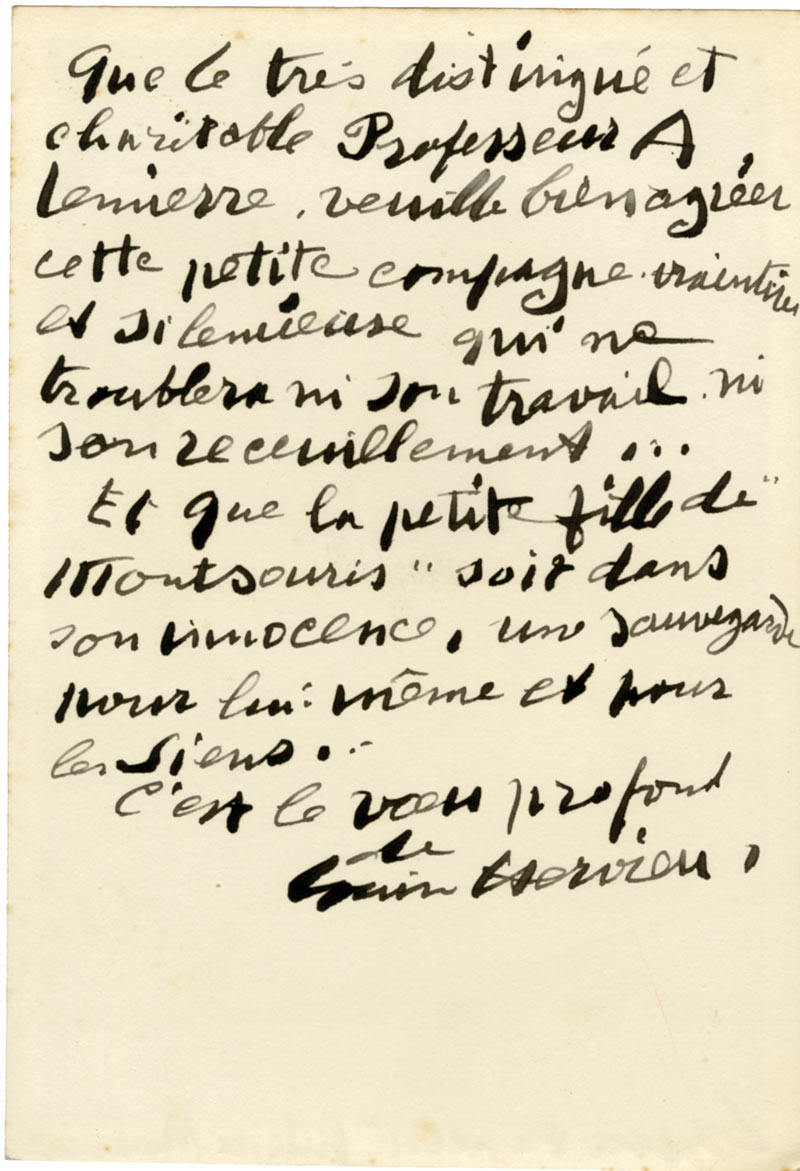 Que le très distingué et
charitable Professeur A
Lemierre, veuille bien agréer
cette petite compagne craintive
et silencieuse qui ne
troublera ni son travail ni
son receuillement ...
Et que la petite fille de "
Montsouris " soit dans
son innocence, une sauvegarde
pour lui-même et pour
les Siens...
C'est le vœu profond
de
Louise Hervieu,